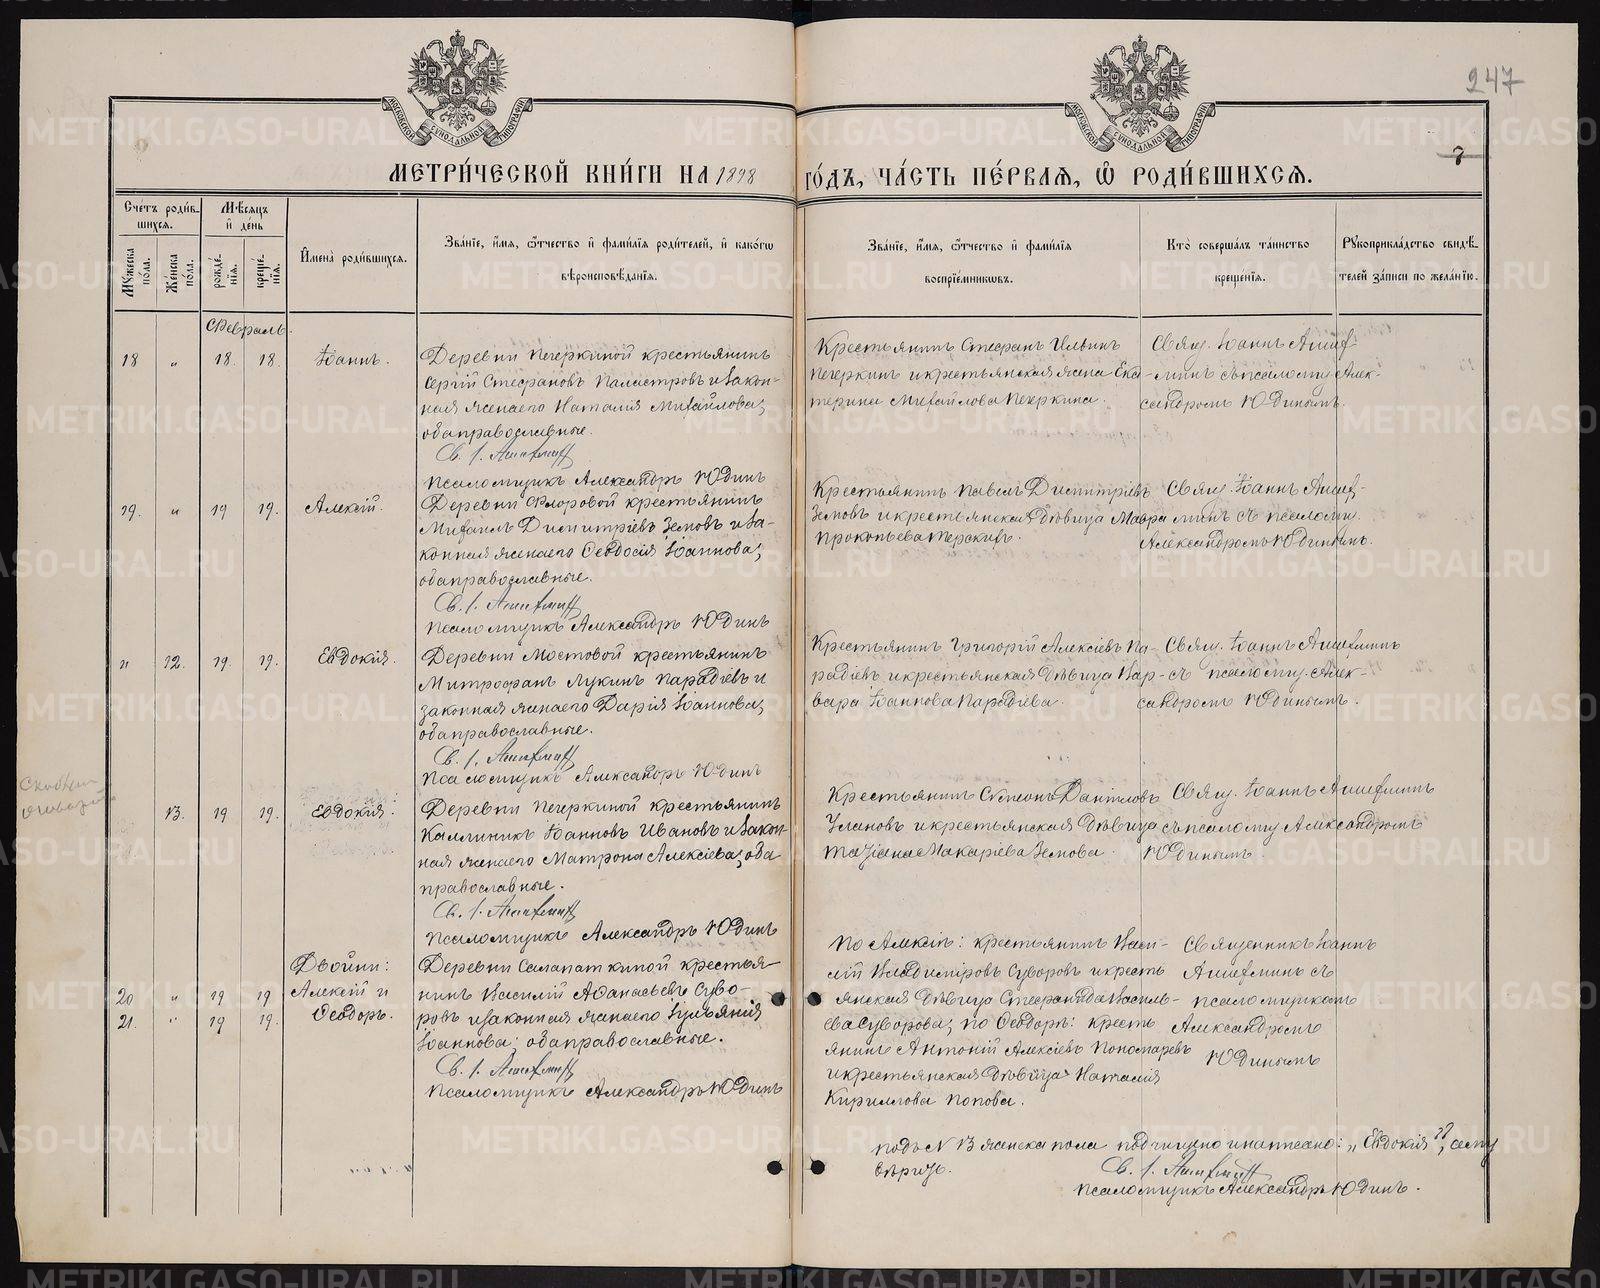 247
7
МОСКОВСКОЙ СѴНОДАЛЬНОЙ ТИПОГРАФІИ
МОСКОВСКОЙ СѴНОДАЛЬНОЙ ТИПОГРАФІИ
МЕТРИ́ЧЕСКОЙ КНИ́ГИ НА 1898 ГО́ДЪ, ЧА́СТЬ ПЕ́РВАѦ, Ѿ РОДИ́ВШИХСѦ.
Сче́тъ роди́в-
шихсѧ.
Мѣ́сѧцъ
и҆ де́нь
Мꙋ́жеска по́ла.
Же́нска по́ла.
рожде́-
нїѧ.
креще́-
нїѧ.
И҆мена̀ роди́вшихсѧ.
Зва́нїе, и҆́мѧ, ѻ҆́тчество и҆ фами́лїѧ роди́телей, и҆ како́гѡ
вѣроисповѣ́данїѧ.
Зва́нїе, и҆́мѧ, ѻ҆́тчество и҆ фами́лїѧ
воспрїе́мникѡвъ.
Кто̀ соверша́лъ та́инство
креще́нїѧ.
Рꙋкоприкла́дство свидѣ́-
телей за́писи по жела́нїю.
Февраль.
18 " 18. 18. Іоаннъ.
Деревни Печеркиной крестьянинъ
Сергій Стефановъ Паластровъ и закон-
ная жена его Наталія Михайлова;
оба православные.
Св. І.
Псаломщикъ Александръ Юдинъ
Крестьянинъ Стефанъ Ильинъ
Печеркинъ и крестьянская жена Ека-
терина Михайлова Печеркина.
Свящ. Іоаннъ Аших-
минъ съ псаломщ. Алек-
сандромъ Юдинымъ.
19. " 19 19. Алексій.
Деревни Флоровой крестьянинъ
Михаилъ Димитріевъ Земовъ и за-
конная жена его Ѳеодосія Іоаннова;
оба православные.
Св. І.
Псаломщикъ Александръ Юдинъ
Крестьянинъ Павелъ Димитріевъ
Земовъ и крестьянская дѣвица Мавра
Прокопьева
Свящ. Іоаннъ Аших-
минъ съ псаломщ.
Александромъ Юдинымъ.
" 12. 19. 19. Евдокія.
Деревни Мостовой крестьянинъ
Митрофанъ Лукинъ Парадіевъ и
законная жена его Дарія Іоаннова;
оба православные.
Св. І.
Псаломщикъ Александръ Юдинъ
Крестьянинъ Григорій Алексіевъ Па-
радіевъ и крестьянская дѣвица Вар-
вара Іоаннова Парадіева.
Свящ. Іоаннъ Ашихминъ
съ псаломщ. Алек-
сандромъ Юдинымъ.
13. 19 19. Евдокія:
Деревни Печеркиной крестьянинъ
Каллиникъ Іоанновъ Ивановъ и закон-
ная жена его Матрона Алексіева; оба
православные.
Св. І.
Псаломщикъ Александръ Юдинъ
Крестьянинъ Симеонъ Даніиловъ
Улановъ и крестьянская дѣвица
Татіана Макаріева Земова.
Свящ. Іоаннъ Ашихминъ
съ псаломщ Александромъ
Юдинымъ.
Двойни:
20 " 19 19 Алексій и
21. " 19 19. Ѳеодоръ.
Деревни Салапаткиной крестья-
нинъ Василій Аѳанасьевъ Суво-
ровъ и законная жена его Іуліанія
Іоаннова; оба православные.
Св. І.
Псаломщикъ Александръ Юдинъ
По Алексіи: крестьянинъ Васи-
лій Владиміровъ Суворовъ и кресть
янская дѣвица Стефанида Василь-
ева Суворова; по Ѳеодорѣ: кресть
янинъ Антоній Алексіевъ Пономаревъ
и крестьянская дѣвица Наталія
Кириллова Попова.
Священникъ Іоаннъ
Ашихминъ съ
псаломщикомъ
Александромъ
Юдинымъ
Подъ N 13 женска пола подчищено и написано: „Евдокія", сему
вѣрить.
Св. І.
Псаломщикъ Александръ Юдинъ.